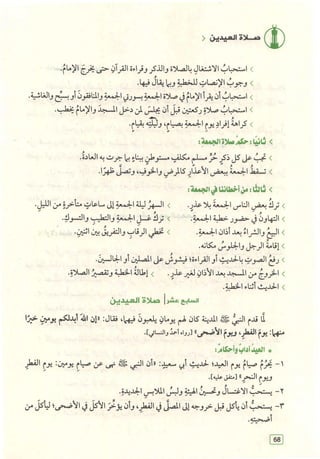 صلاة العيدين
> استحبابُ الاشتغالِ بالصلاةِ والذكرِ وقراءةِ القرآنِ حتى يخرجَ الإمامُ.
> وجوبُ الإنصاتِ للخطبةِ وبما يقالُ فيها.
> استحبابُ أن يقرأَ الإمامُ في صلاةِ الجمعةِ بسورتي الجمعةِ والمنافقونَ أو بسبحَ والغاشيةِ.
> استحبابُ صلاةِ ركعتينِ قبلَ أن يجلسَ لمن دخلَ المسجدَ والإمامُ يخطبُ.
> كراهةُ إفرادِ يومِ الجمعةِ بصيامٍ، وليلتِه بقيامٍ.
> ثانيًا: حكم صلاة الجمعة:
> تجبُ على كلِّ ذكرٍ حرٍّ مسلمٍ مكلفٍ مستوطنٍ ببناءٍ بما جرت به العادةُ.
> تسقطُ الجمعةُ ببعضِ الأعذارِ كالمرضِ والخوفِ، وتصلَّى ظهرًا.
> ثالثًا: من أخطائنا في الجمعة:
> تركُ بعضِ الناسِ الجمعةَ بلا عذرٍ. > السهرُ ليلةَ الجمعةِ إلى ساعاتٍ متأخرةٍ من الليلِ.
> التهاونُ في حضورِ خطبةِ الجمعةِ. > تركُ غسلِ الجمعةِ والتطيبِ والتسوكِ.
> البيعُ والشراءُ بعدَ أذانِ الجمعةِ. > تخطي الرقابِ والتفريقُ بينَ اثنينِ.
> إقامةُ الرجلِ والجلوسُ مكانَه.
> رفعُ الصوتِ بالحديثِ أو القراءةِ؛ فيشوشُ على المصلينَ أو الجالسينَ.
> الخروجُ من المسجدِ بعدَ الأذانِ لغيرِ عذرٍ. > إطالةُ الخطبةِ وتقصيرُ الصلاةِ.
> الحديثُ أثناءَ الخطبةِ.
السابع عشر| صلاة العيدين
لمّا قدم النبيُّ ﷺ المدينةَ كان لهم يومانِ يلعبونَ فيهما، فقال: «إن الله أبدلكم يومين خيرًا
منهما: يوم الفطر، ويوم الأضحى» [رواه أحمد والنسائي].
• العيد آداب وأحكام:
١- يحرُمُ صيامُ يومِ العيد؛ لحديث أبي سعيد: «أن النبي ﷺ نهى عن صيام يومين: يوم الفطر
ويوم النحر» [متفق عليه].
٢- يستحبُّ الاغتسالُ وتحسينُ الهيئةِ ولبسُ الملابسِ الجديدةِ.
٣- يستحبُّ أن يأكلَ قبلَ خروجِه إلى المصلَّى في الفطرِ، وأن يؤخرَ الأكلَ في الأضحى؛ ليأكلَ من
أضحيتِه.
68